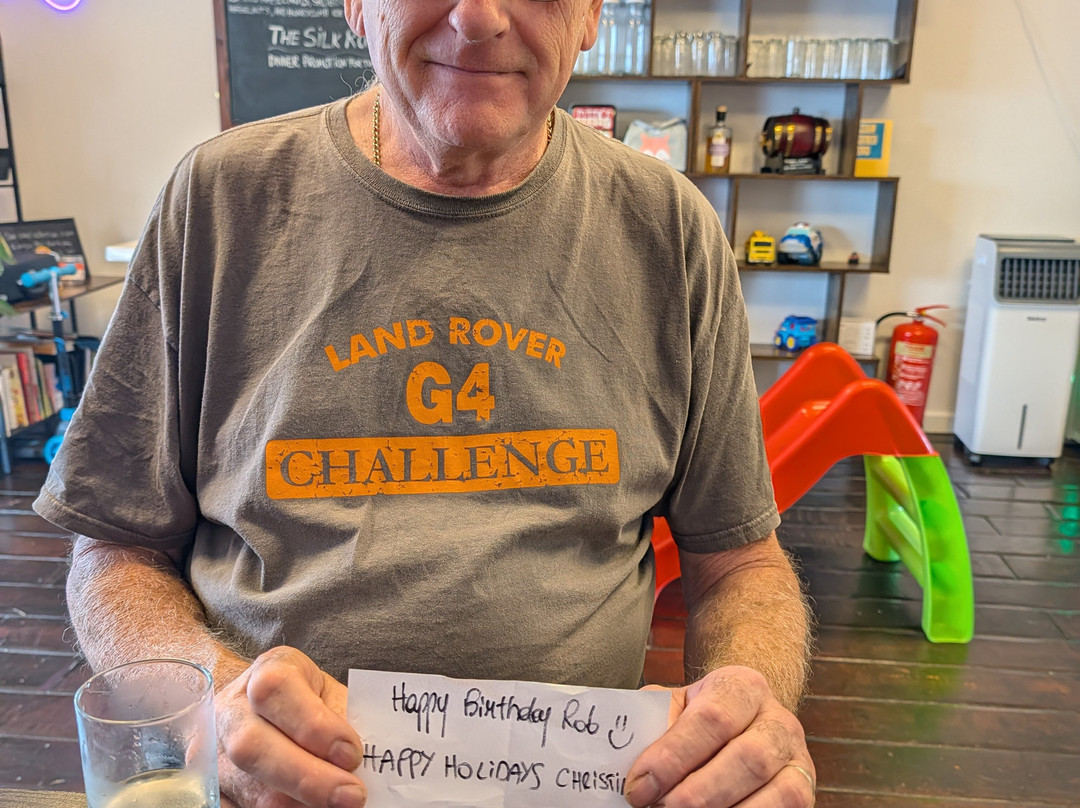 THE SILK
LAND ROVER
G4
CHALLENGE
Happy Birthday Rob :)
HAPPY HOLIDAYS